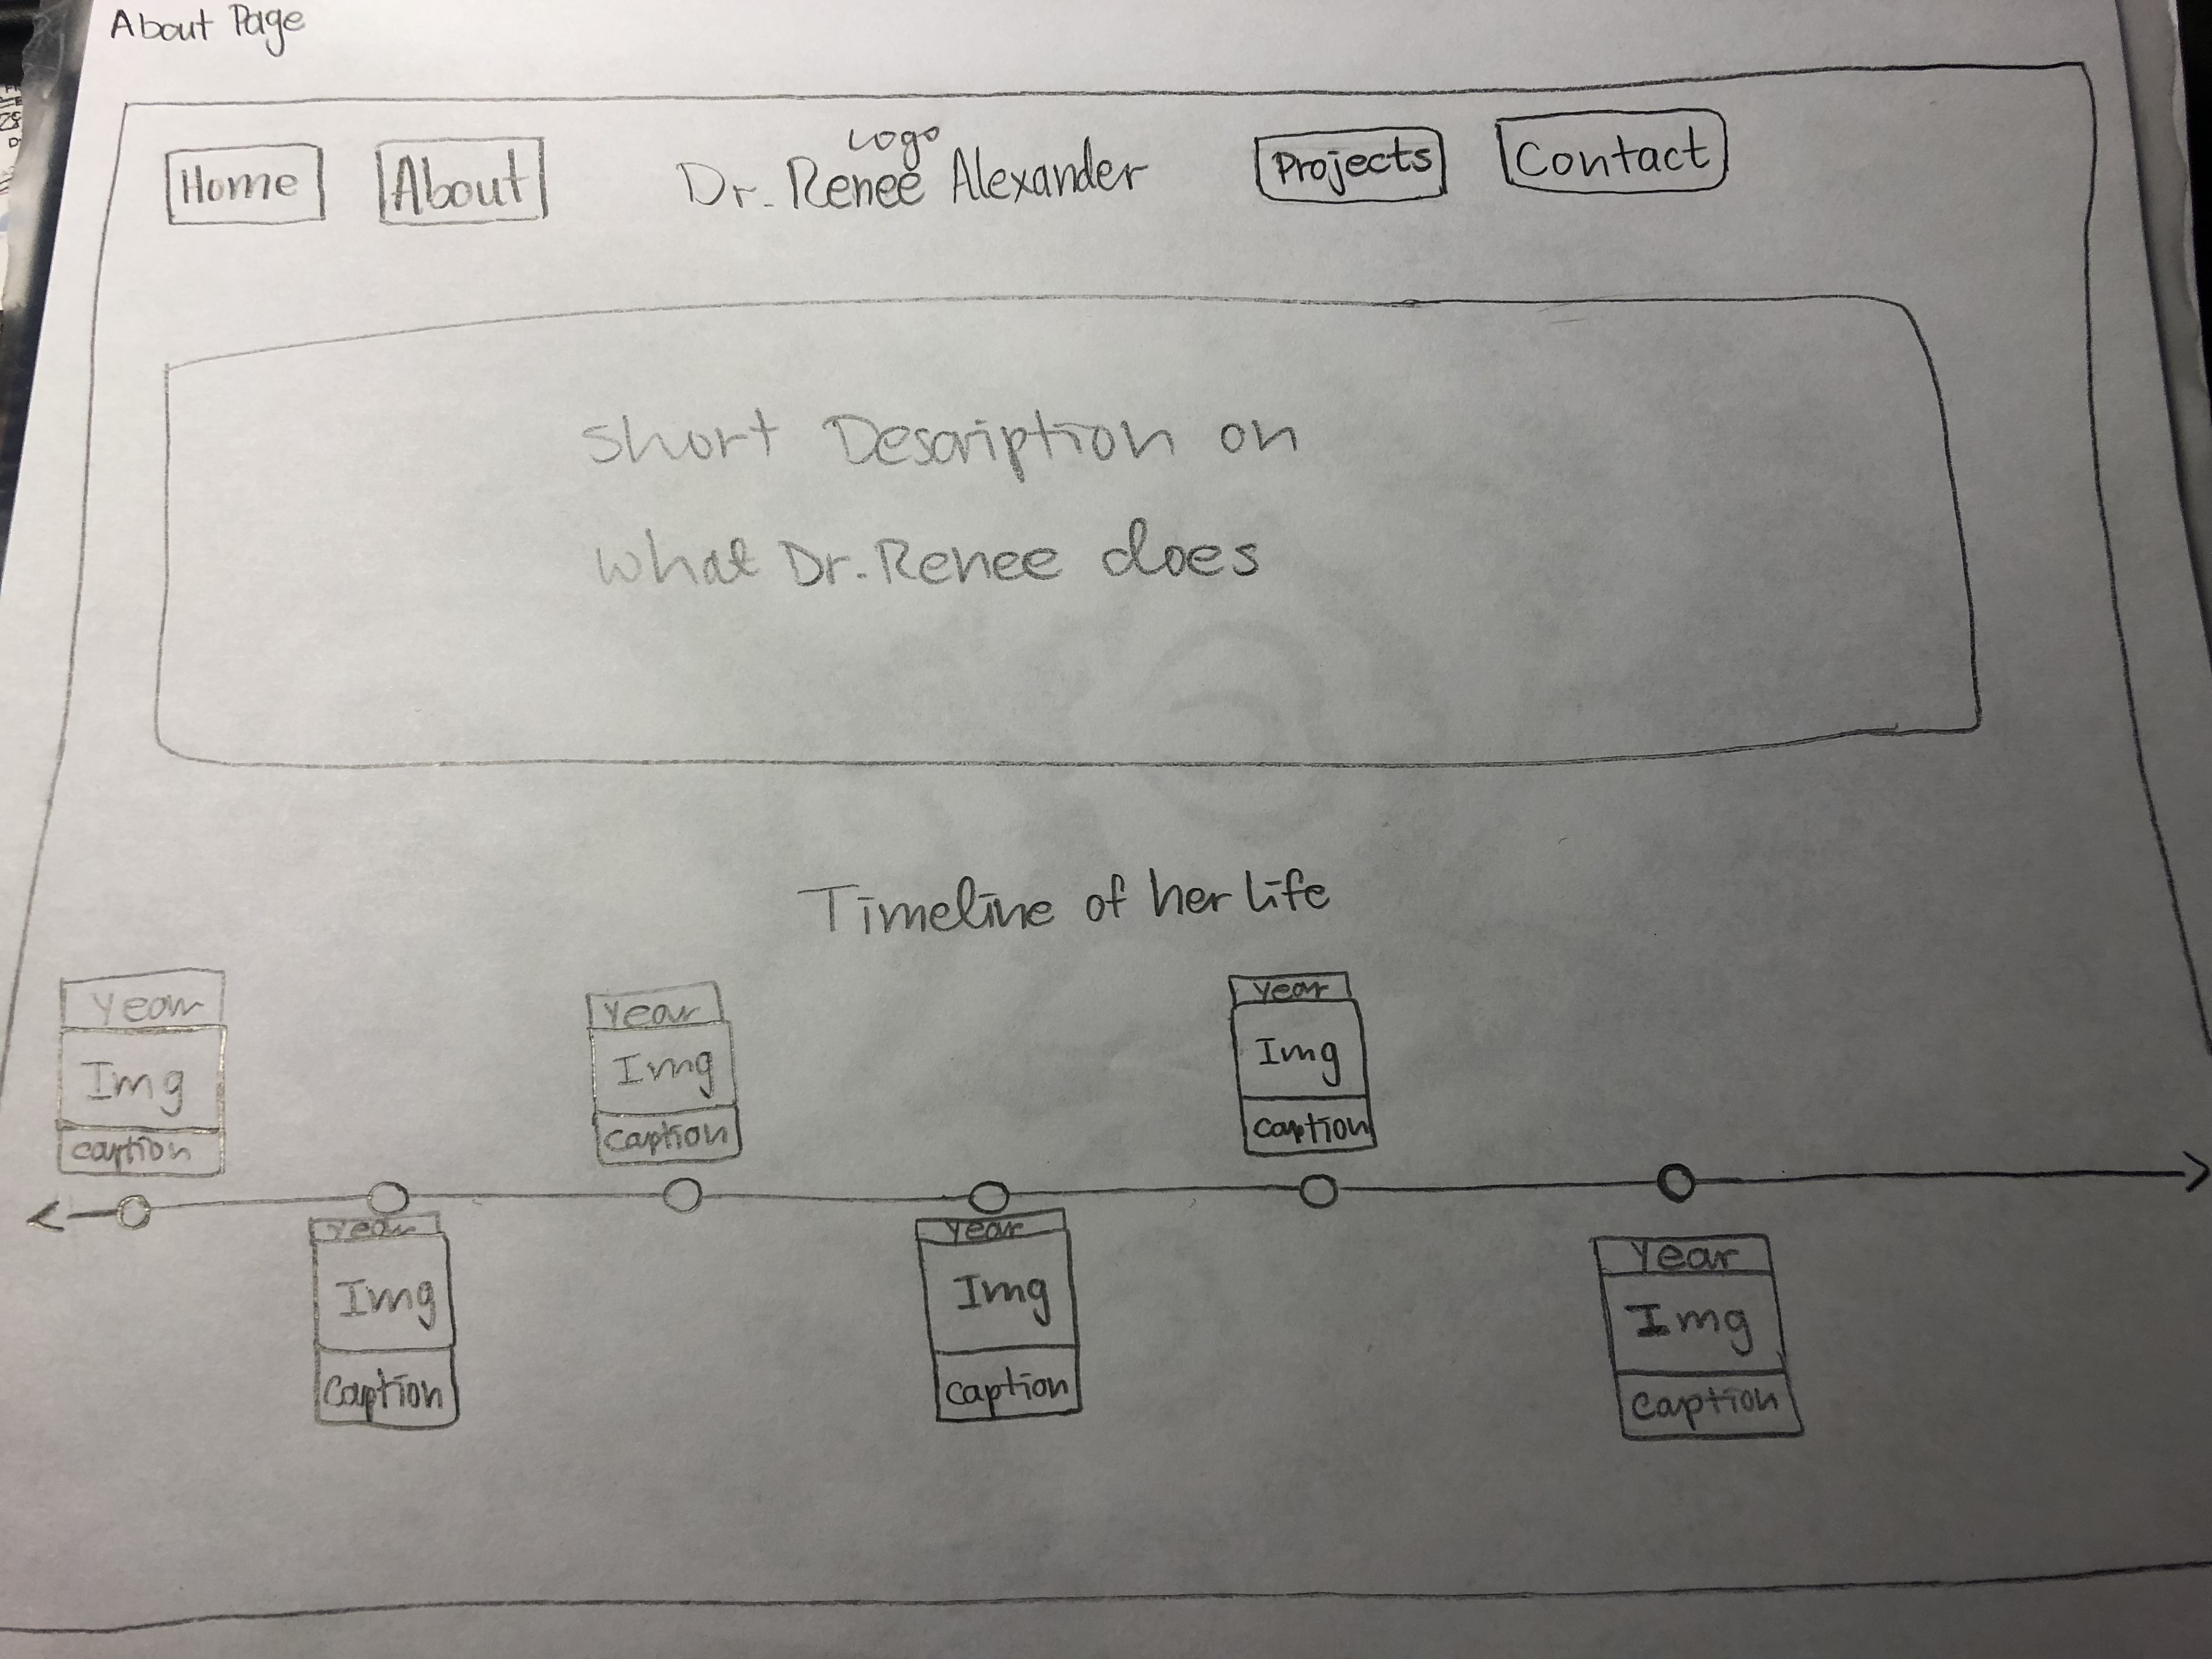 About Page
Home About Logo Projects Contact
Dr. Renee Alexander
Short Description on
what Dr. Renee does
Timeline of her life
year
Img
caption
year
Img
caption
year
Img
caption
year
Img
caption
year
Img
caption
year
Img
caption